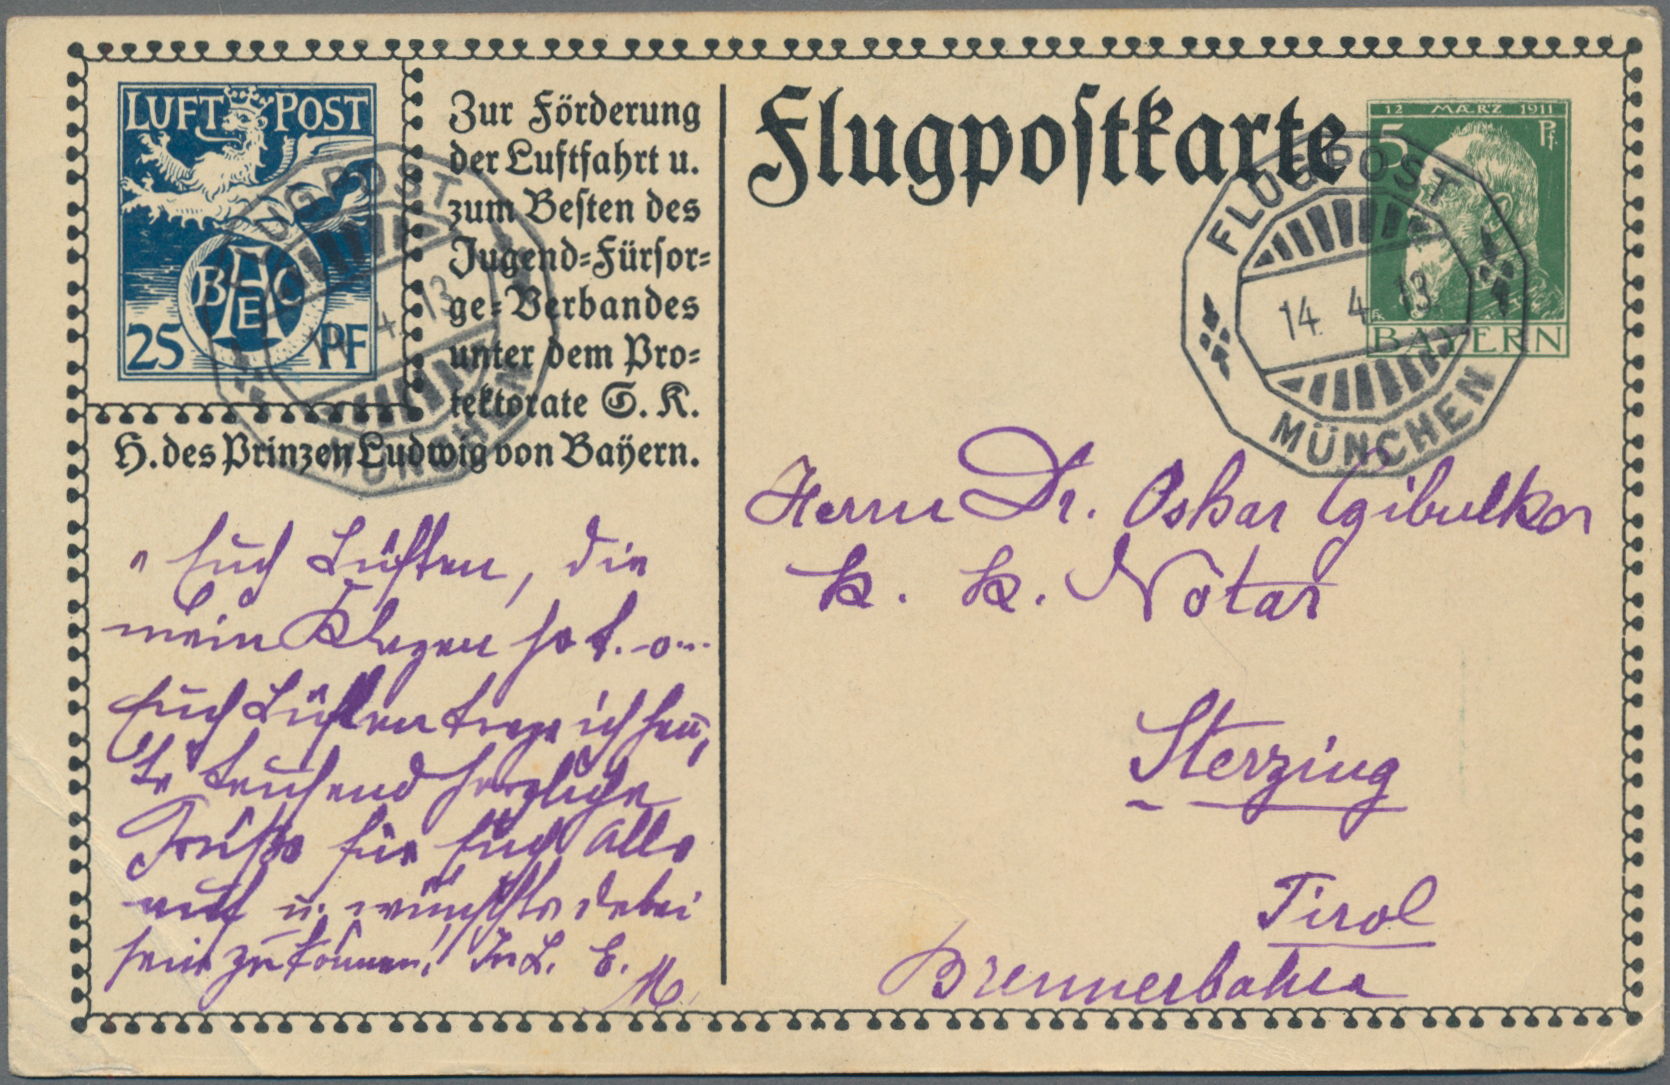 LUFT POST
BAEC
25 PF
Zur Förderung
der Luftfahrt u.
zum Besten des
Jugend=Fürsor=
ge=Verbandes
unter dem Pro=
tektorate S. K.
H. des Prinzen Ludwig von Bayern.
FLUGPOST
4. 13
MÜNCHEN
Flugpostkarte
12 MÆRZ 1911
5 Pf.
BAYERN
FLUGPOST
14. 4. 13.
MÜNCHEN
"Euch Lüften, die
mein Klagen so t. -o-..
Euch Lüften trage ich heu,
te
herzliche
Grüße für Euch Alle
auf u. wünschte dabei
sein zu können! In L. E.
M.
Herrn Dr. Oskar
k. k. Notar
Sterzing
Tirol
Brennerbahn